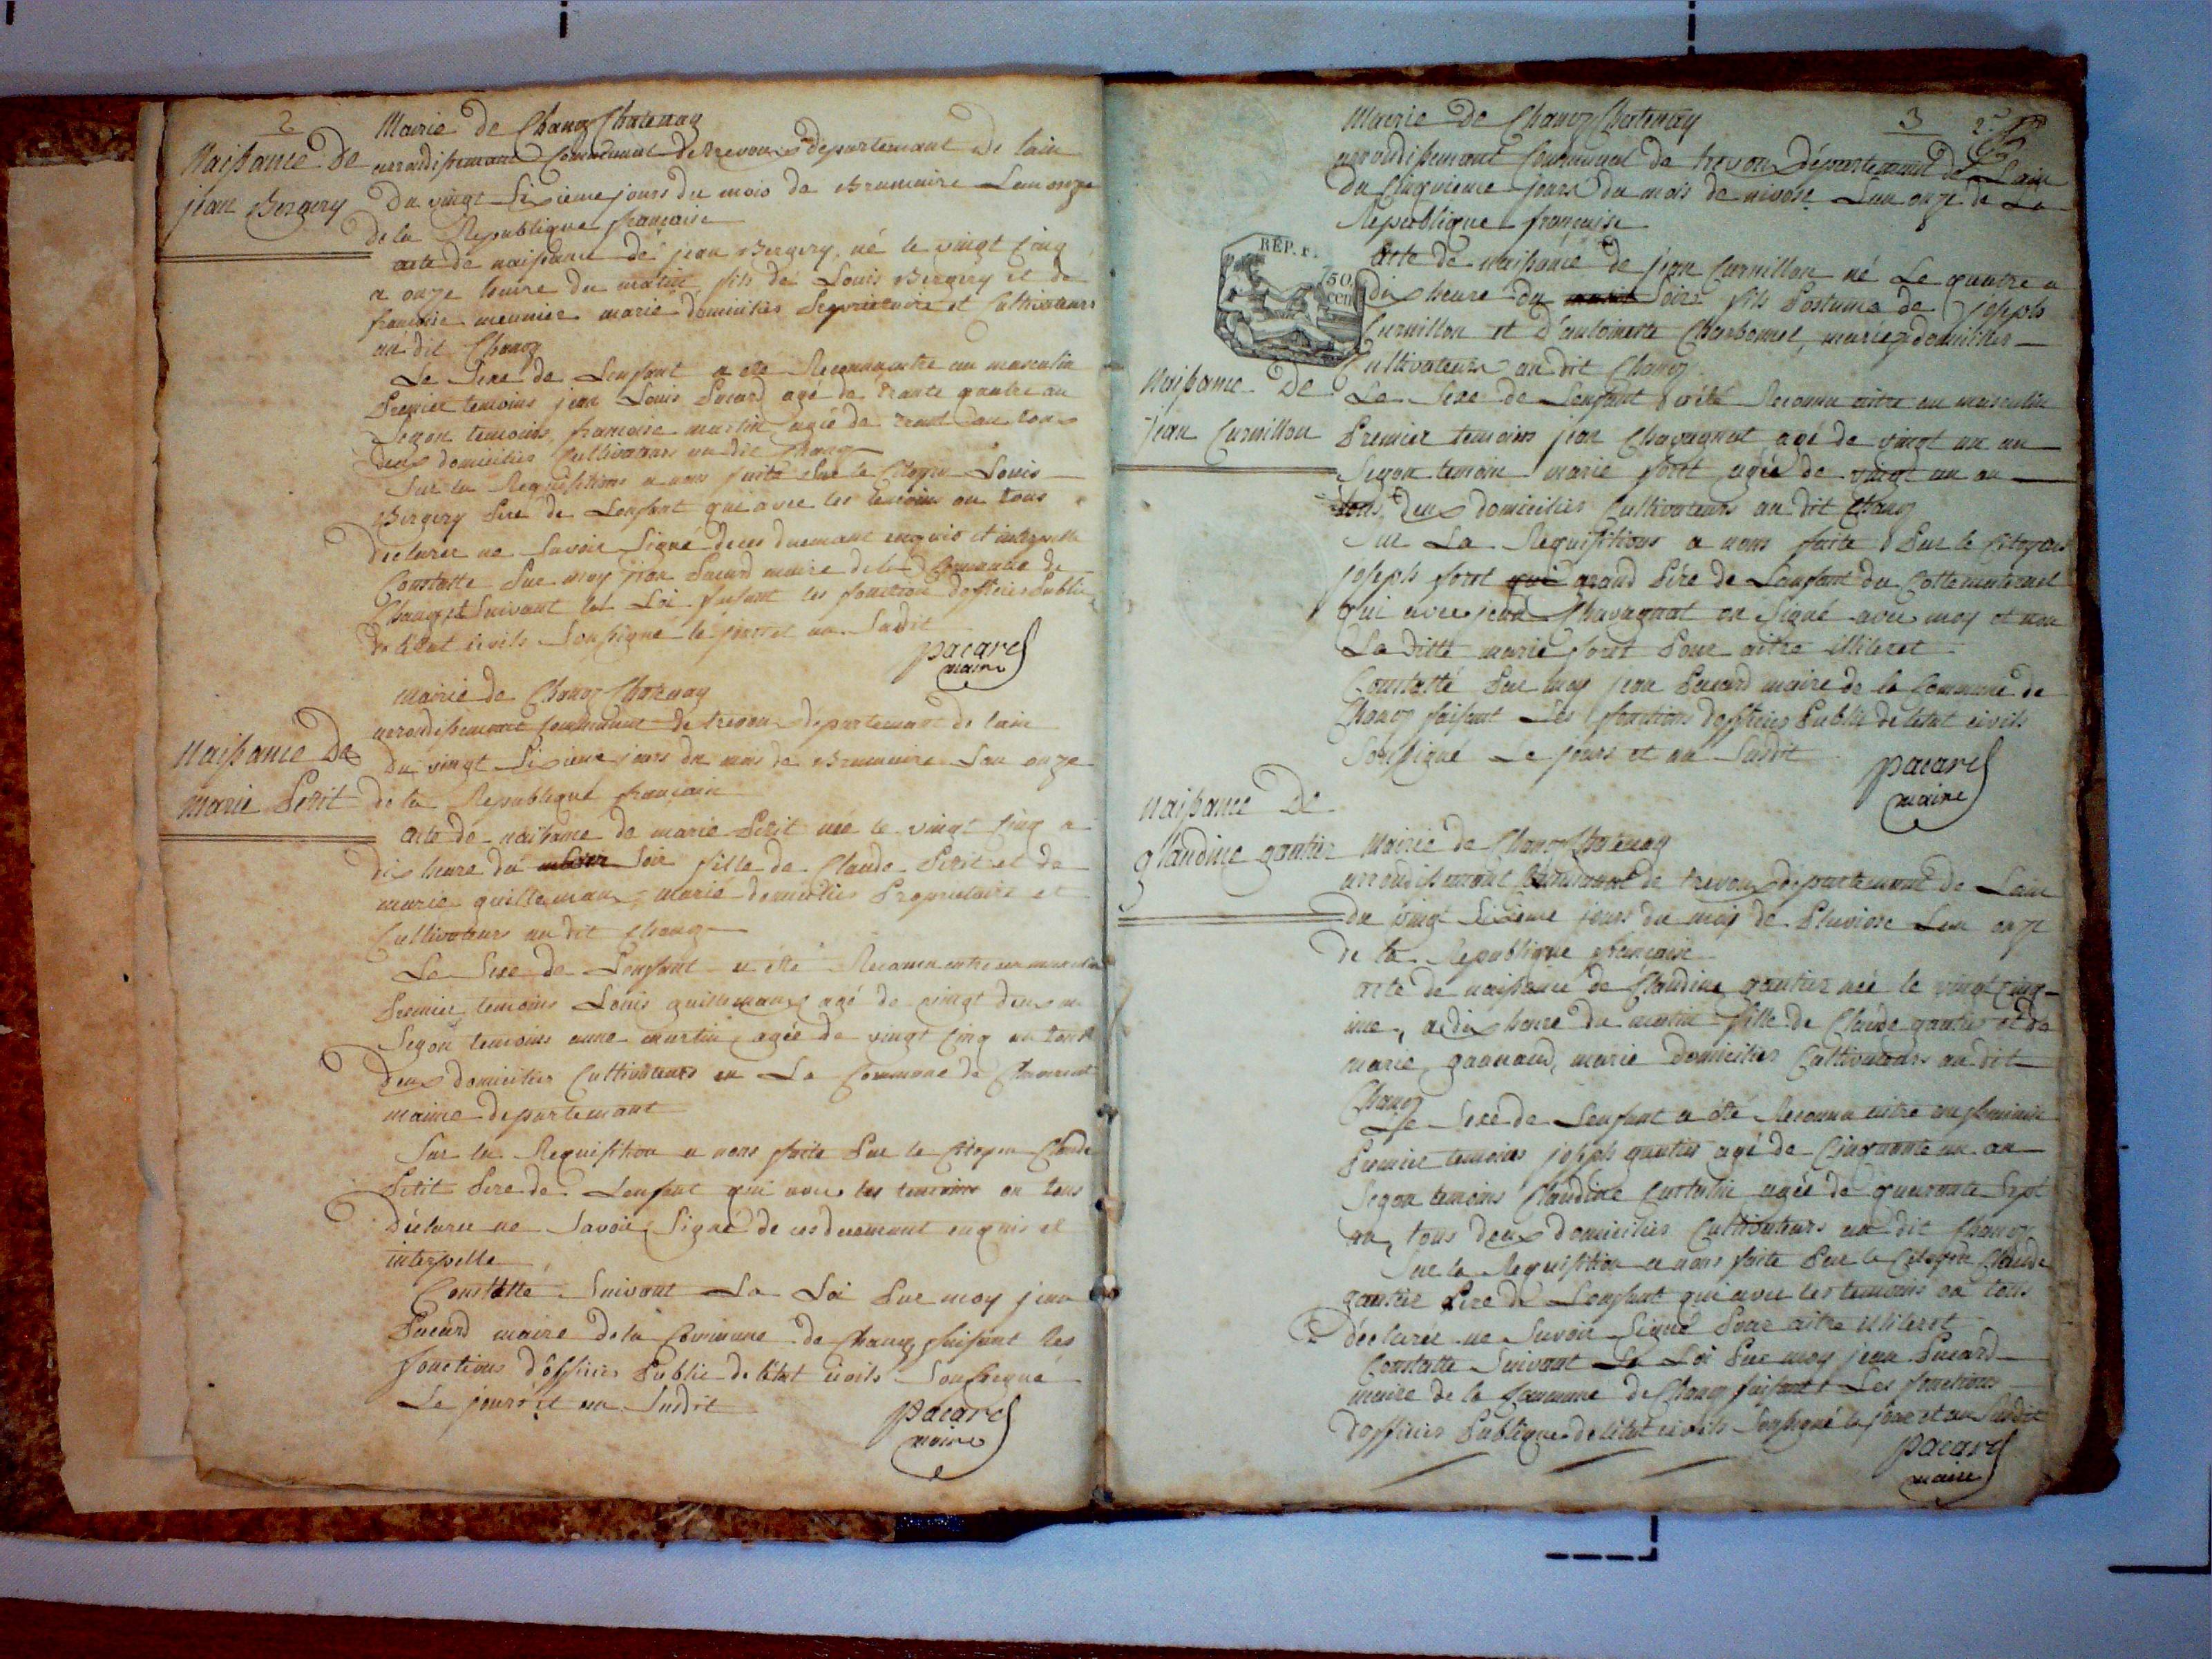 2
Mairie de Chanoz Chatenay
Naissance De
jean Bergery
arrondissement Communal de trevoux departemant De lain
Du vingt Sixieme jours du mois de Brumaire Lan onze
De la Republique francaise
acte de naissance de jean Bergery, né le vingt Cinq
a onze heure du matin, fils de Louis Bergery et de
francoise meunier marie domicilies Propriétaire et Cultivateurs
au dit Chanoz
Le Sexe de Lenfant a été Reconnu aitre un masculin
Premier temoins jean Louis Pacard agé de trante quatre an
Segon temoins, francoise martin agée de trant an tous
deux domicilies Cultivateurs au dit Chanoz
Sur la Requisitions a nous faite Par le Citoyen Louis
Bergery Pere de Lenfant qui avec les temoins on tous
declarer ne Savoir Signé de ces duemant enquis et interpelle
Constatte Par moy jean Pacard maire de la Commune de
Chanoz Suivant la Loi faisant les fonction dofficier Public
de létat civils Soussigne le jour et an Sudit
pacard
maire
mairie de Chanoz Chatenay
Naissance De
marie Petit
arrondissement communal de trevoux departemant de lain
du vingt Sixieme jours du mois de Brumaire Lan onze
de la Republique francaise
acte de naissance de marie Petit née le vingt Cinq a
dix heure du Soir fille de Claude Petit et de
marie guillemaux, marié domicilies Proprietaire et
Cultivateurs au dit Chanoz
Le Sexe de Lenfant a été Reconnu aitre un
Premier temoins Louis guillemaux agé de vingt deux an
Segon temoins anne martin, agée de vingt Cinq an tous
deux domicilies Cultivateurs en La Commune de
maime departemant
Sur la Requisition a nous faite Par le Citoyen Claude
Petit Pere de Lenfant qui avec les temoins on tous
Déclarer ne Savoir Signé de ces duemant enquis et
interpelle
Constatte Suivant La Loi Par moy jean
Pacard maire de la Commune de Chanoz faisant les
fonctions d'officier Public de létat civils Soussigné
Le jour et an Sudit
pacard
maire
3
Mairie De Chanoz Chatenay
arrondissemant Communal de trevoux Département de Lain
du Cinquieme jours du mois de nivose Lan onze de La
Republique francaise
RÉP. F.
50
cen
Naissance De
jean Curnillon
acte de naissance de jean Curnillon né Le quatre a
dix heure du Soir fils Postume de joseph
Curnillon et d'antoinette Charbonnel, mariez domicilies
Cultivateurs au dit Chanoz
Le Sexe de Lenfant a été Reconnu aitre un masculin
Premier temoins jean Chavagnat agé de vingt un an
Segon temoin marie foret agée de vingt un an
tous deux domicilies Cultivateurs au dit Chanoz
Sur La Requisitions a nous faite Par le Citoyens
joseph foret grand Pére de Lanfant du Cotte maternel
qui avec jean Chavagnat on Signé avec moy et non
La ditte marie foret Pour aitre illileret
Constatté Par moy jean Pacard maire de la Commune de
Chanoz faisant Les fonctions dofficier Public de letat civils
Soussigné Le jours et an Sudit
pacard
maire
Naissance De
glaudine gautier
Mairie de Chanoz Chatenay
arrondissemant Communal de trevoux departemant de Lain
du vingt Sixieme jours du mois de Pluviose Lan onze
de la Republique francaise
acte de naissance de Claudine gautier née le vingt cinq
ime, a dix heure du matin fille de Claude gautier et de
marie gagnaud, marie domicilies Cultivateurs au dit
Chanoz
Le Sexe de Lenfant a été Reconnu aitre un feminin
Premier temoins joseph gautier agé de Cinquante un an
Segon temoins Claudine Curtalin agée de quarante Sept
an, tous deux domicilies Cultivateurs au dit Chanoz
Sur la Requisition a nous faite Par le Citoyen Claude
gautier Pere de Lenfant qui avec les temoins on tous
déclarér ne Savoir Signé Pour aitre illileret
Constatte Suivant La Loi Par moy jean Pacard
maire de la Commune de Chanoz faisant Les fonctions
d'officier Publique de létat civils Soussigné le jour et an Sudit
pacard
maire